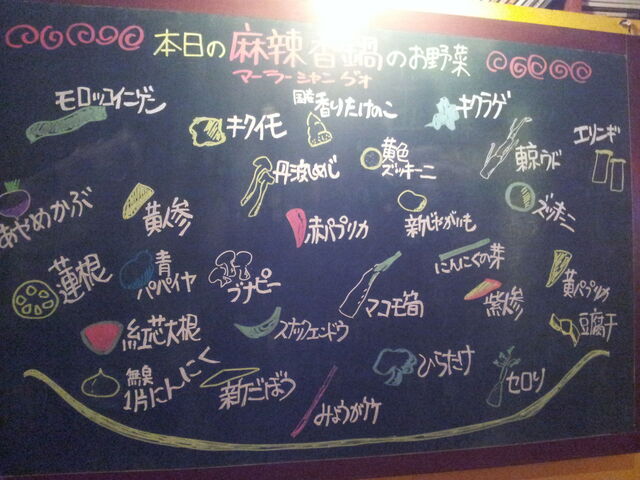 本日の麻辣香鍋のお野菜
マーラーシャングオ
モロッコインゲン
キクイモ
国産香りたけのこ
キクラゲ
エリンギ
丹波しめじ
黄色
ズッキーニ
京ウド
ズッキーニ
あやめかぶ
黄人参
赤パプリカ
新じゃがいも
にんにくの芽
蓮根
青
パパイヤ
ブナピー
マコモ筍
紫人参
黄パプリカ
紅芯大根
スナップエンドウ
豆腐干
無臭
1片にんにく
新ごぼう
みょうがタケ
ひらたけ
セロリ